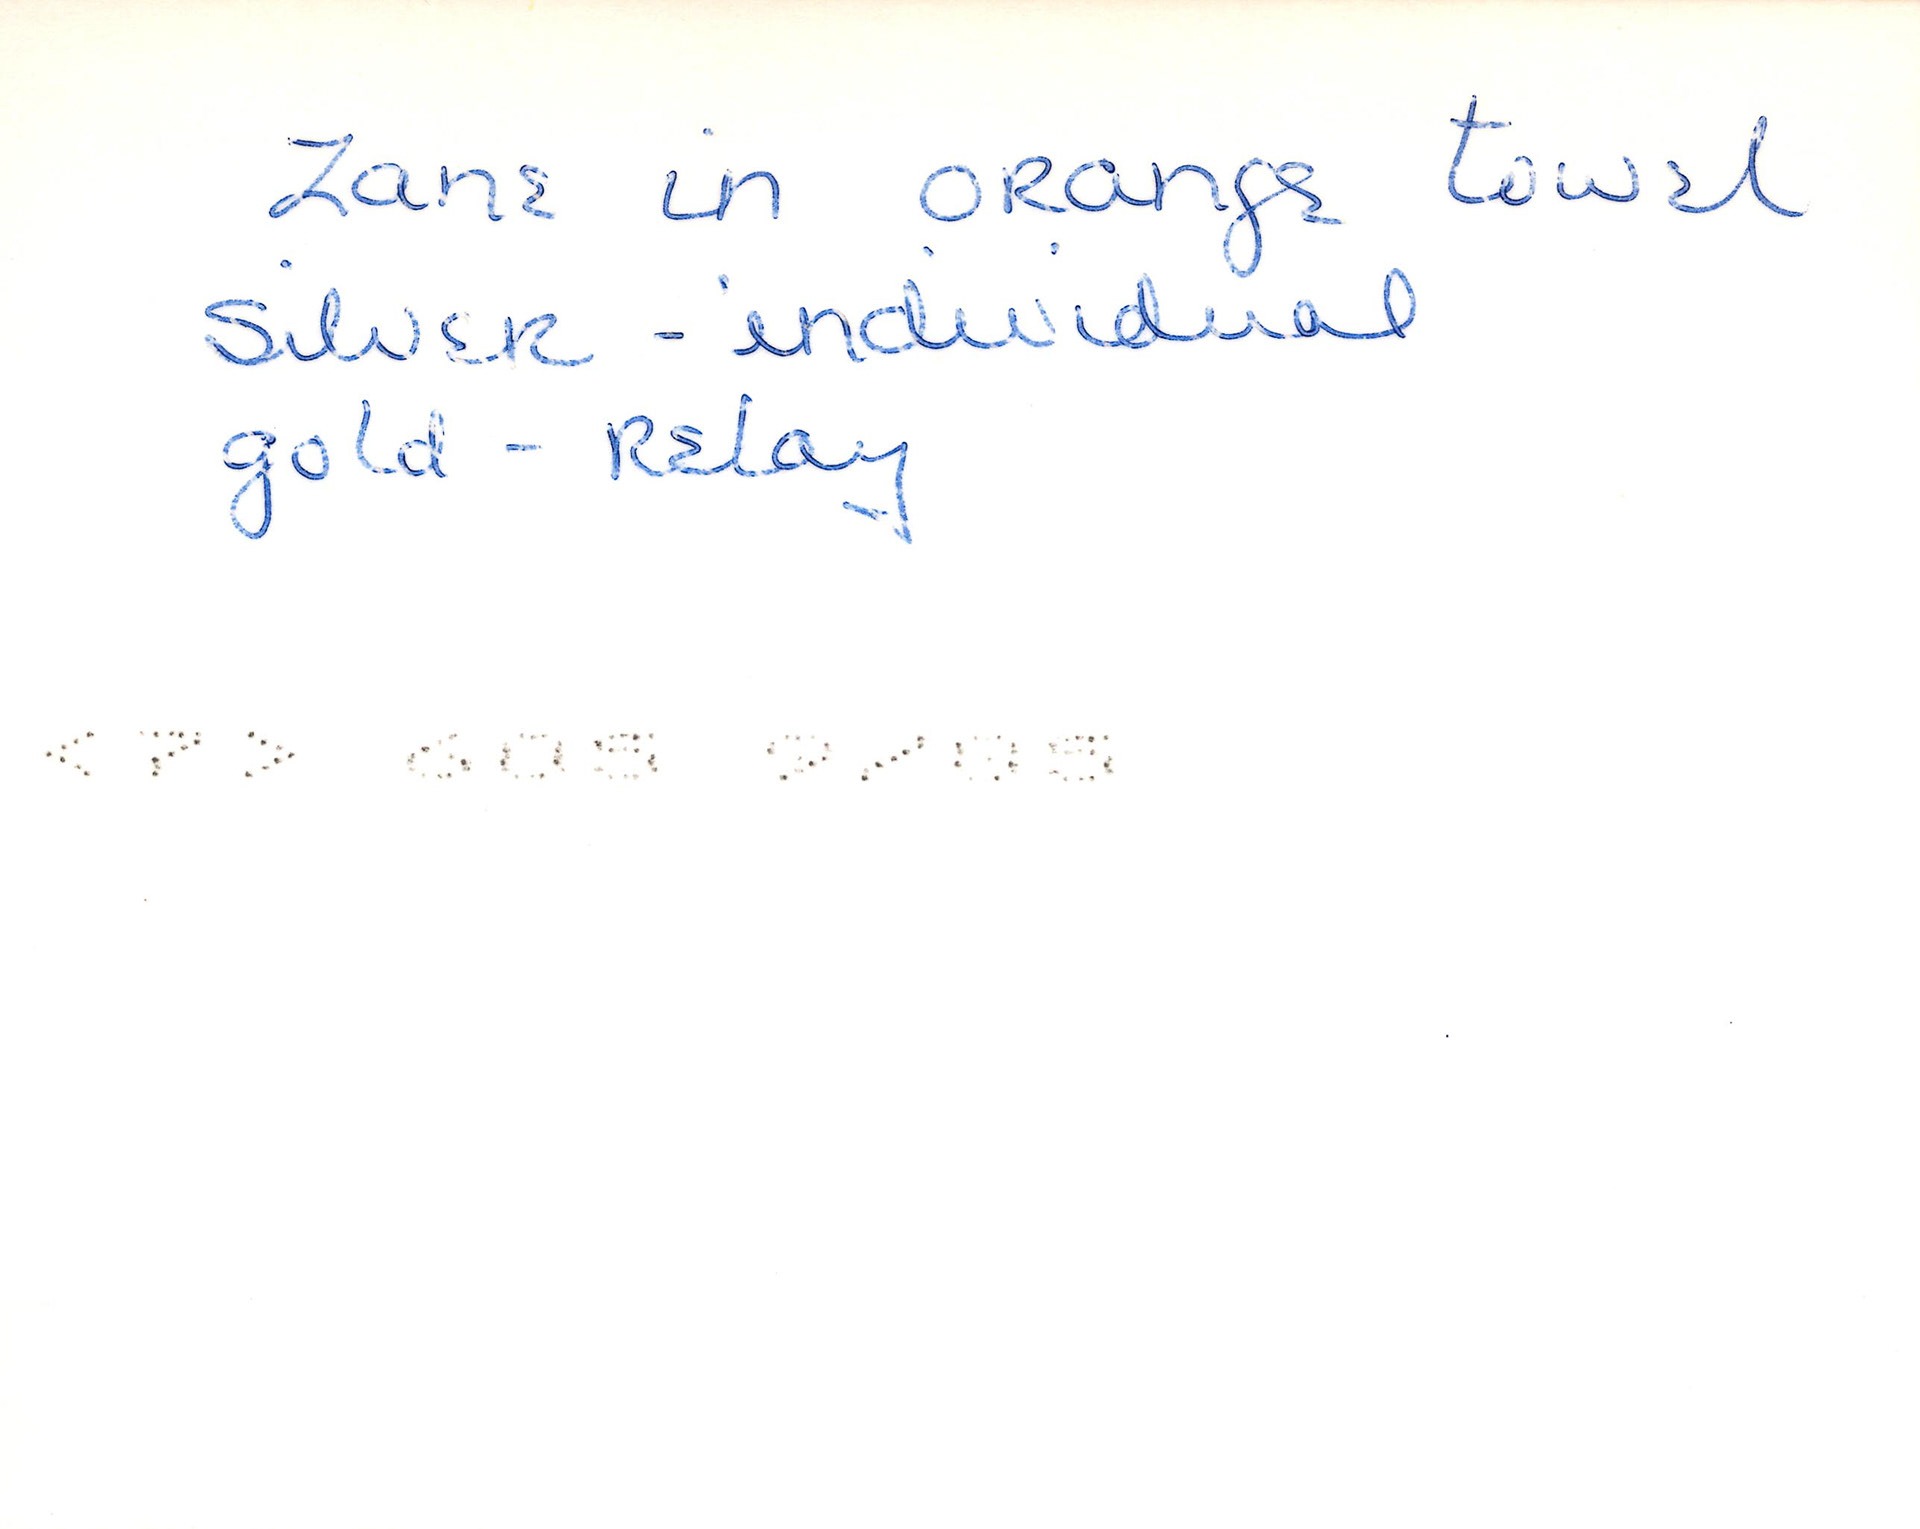 Zane in orange towel
silver - individual
gold - Relay
<7> 605 9/05